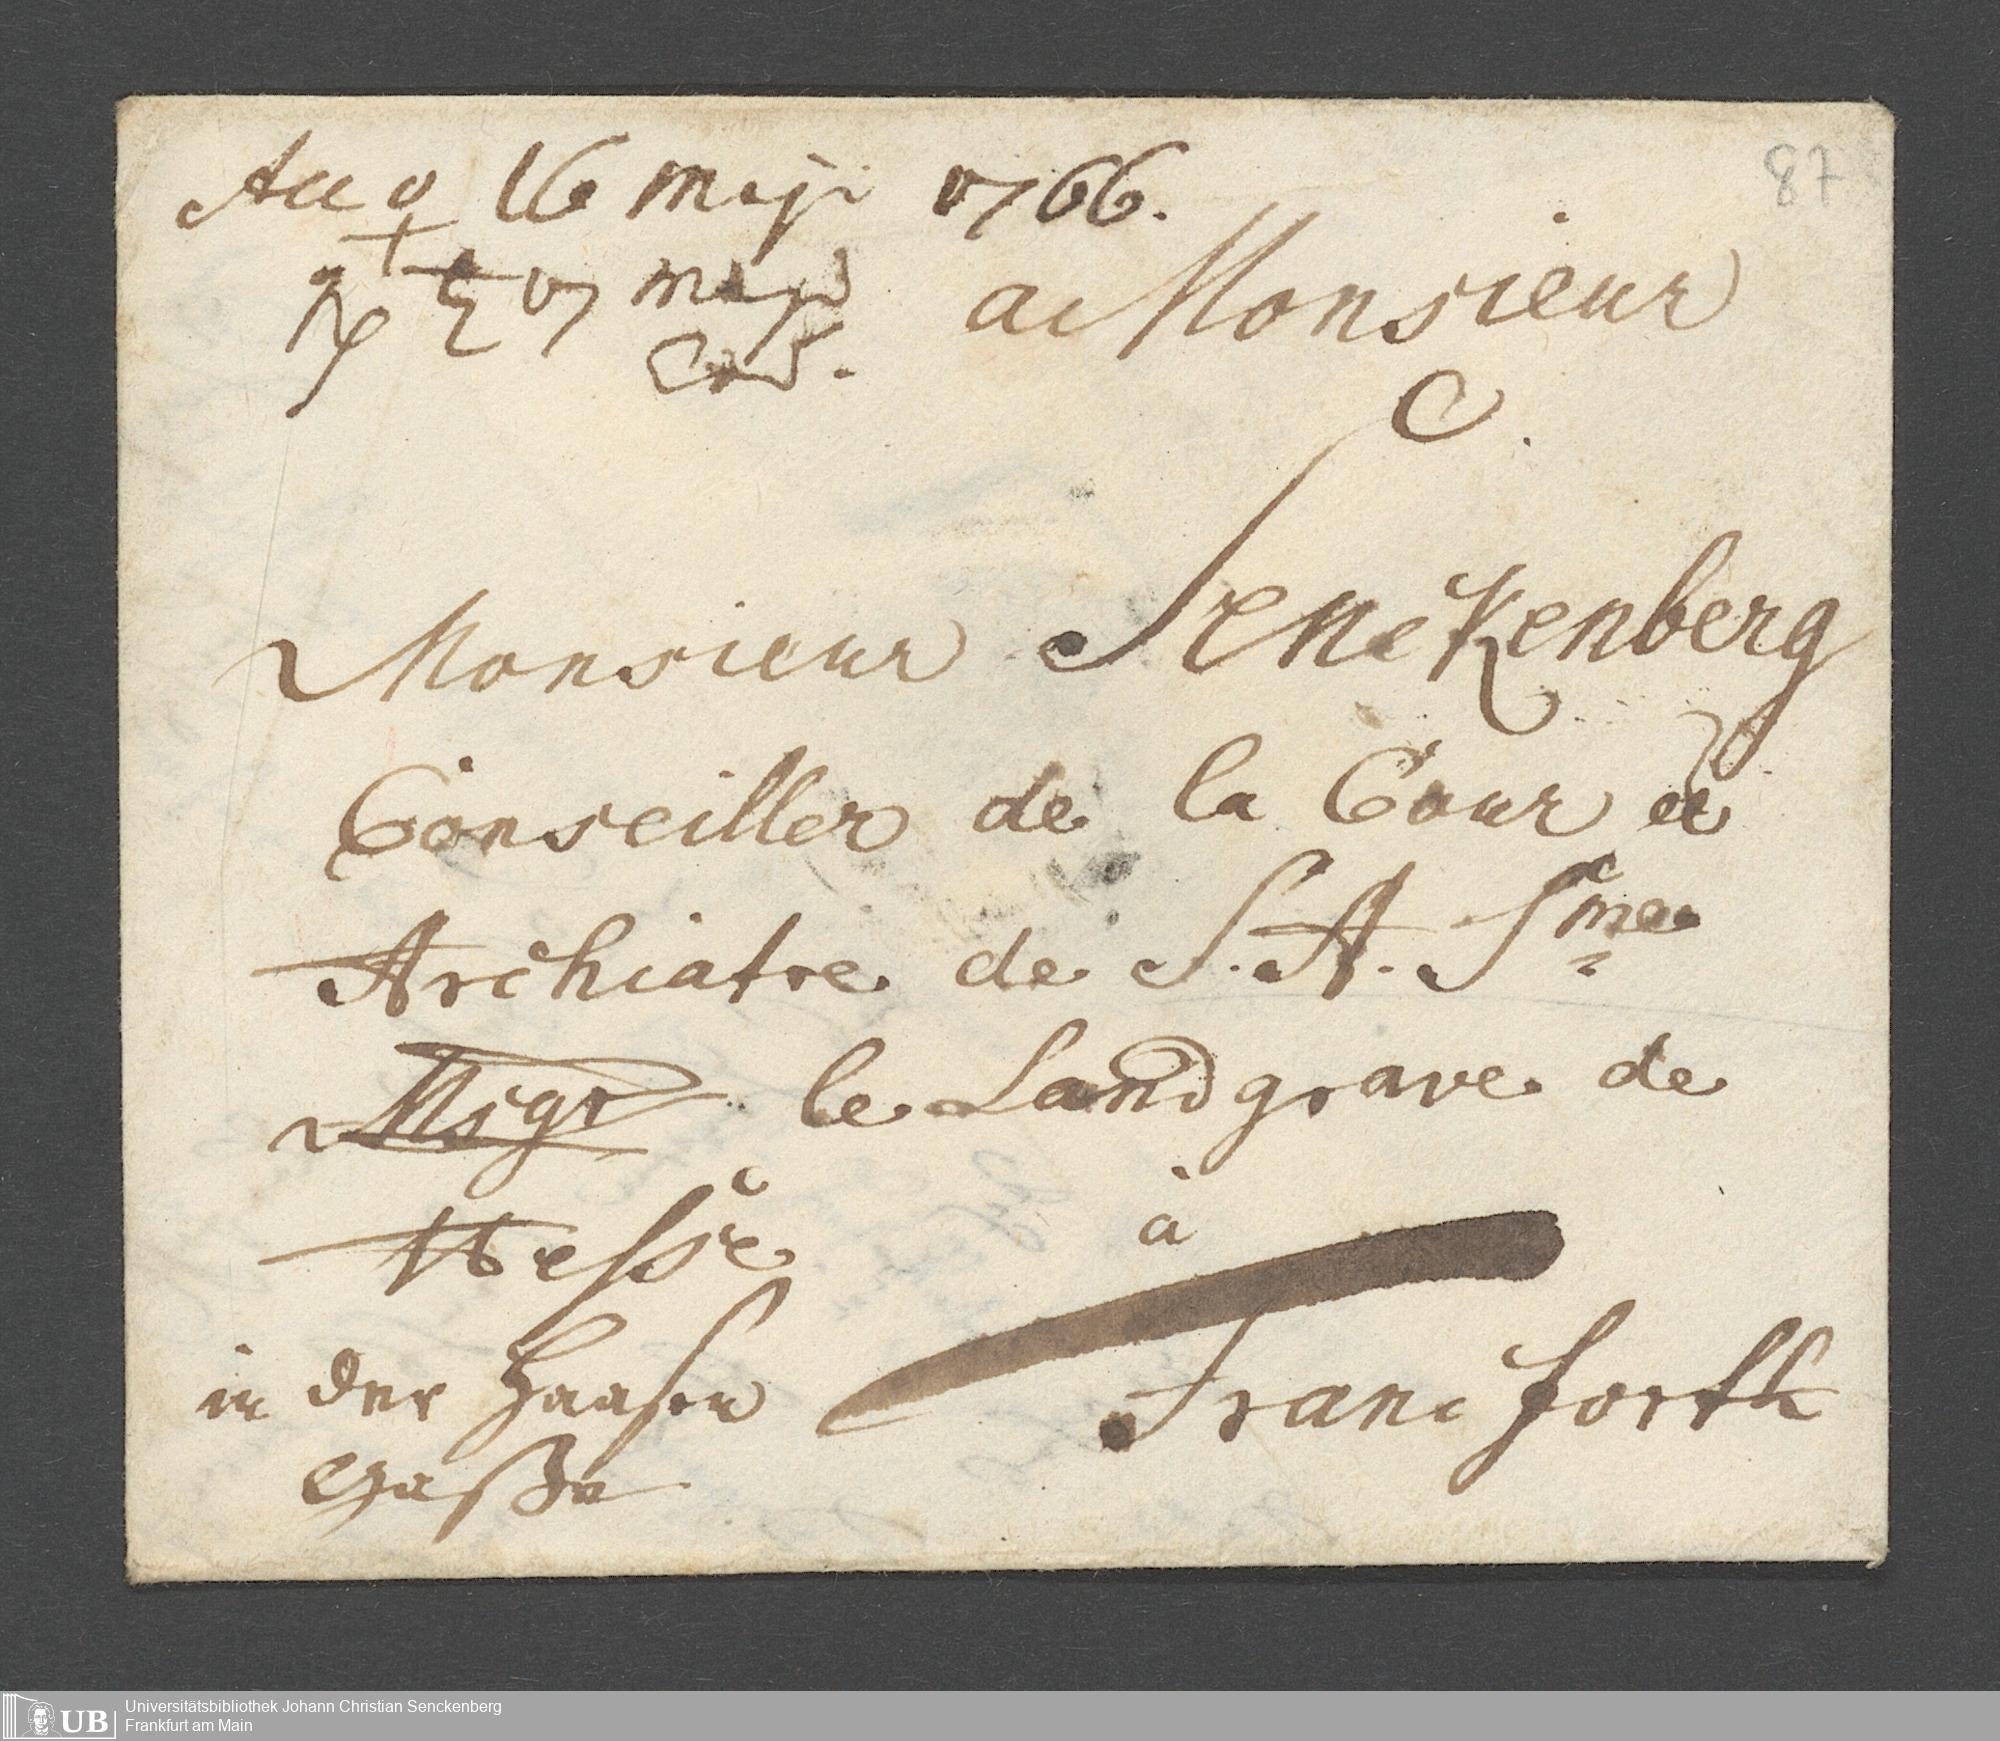 Acc ♀ 16 Maji 1766.
87
Rp ♄ 17 Maji
eod.
a Monsieur
Monsieur Senckenberg
Conseiller de la Cour et
Archiatre de S. A. Sme
Msgr le Landgrave de
Hesse
à
in der Haasen
Francforth
Gaße
UB
Universitätsbibliothek Johann Christian Senckenberg
Frankfurt am Main